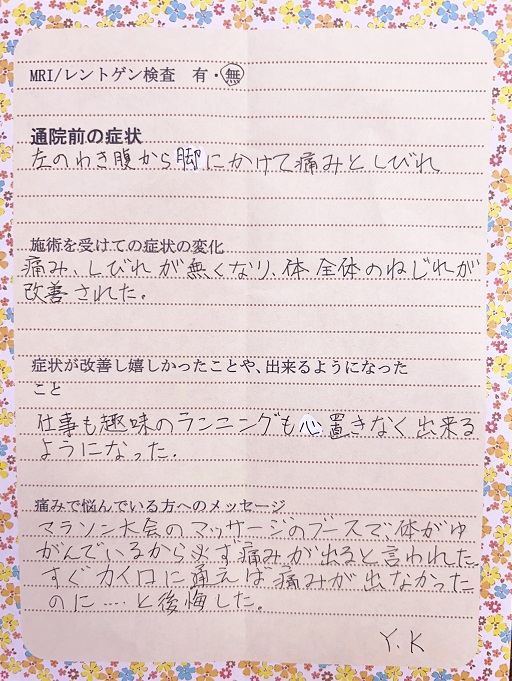 MRI/レントゲン検査　有・無
通院前の症状
左のわき腹から脚にかけて痛みとしびれ
施術を受けての症状の変化
痛み、しびれが無くなり、体全体のねじれが
改善された。
症状が改善し嬉しかったことや、出来るようになった
こと
仕事も趣味のランニングも心置きなく出来る
ようになった.
痛みで悩んでいる方へのメッセージ
マラソン大会のマッサージのブースで、体がゆ
がんでいるから必ず痛みが出ると言われた。
すぐカイロに通えば痛みが出なかった
のに……と後悔した。
Y.K